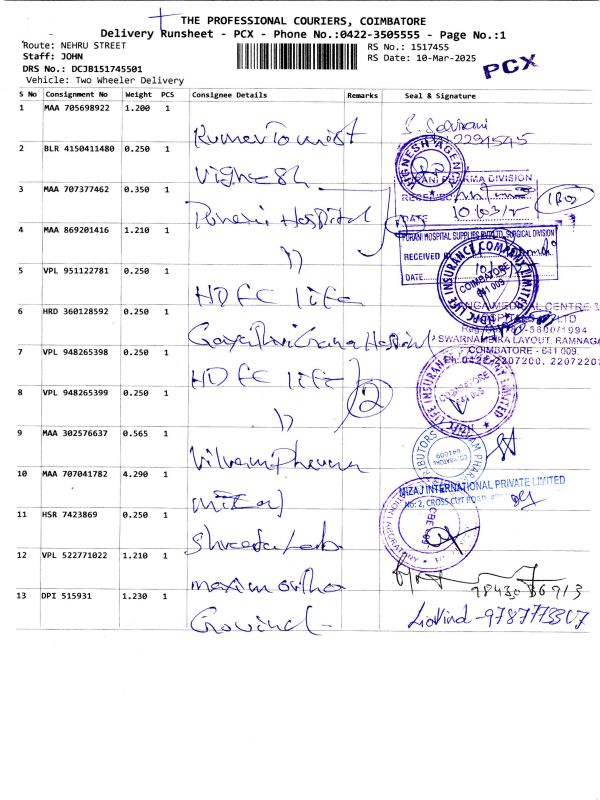 THE PROFESSIONAL COURIERS, COIMBATORE
Delivery Runsheet - PCX - Phone No.:0422-3505555 - Page No.:1
Route: NEHRU STREET
RS No.: 1517455
Staff: JOHN
RS Date: 10-Mar-2025
PCX
DRS No.: DCJB151745501
Vehicle: Two Wheeler Delivery
S No Consignment No Weight PCS Consignee Details Remarks Seal & Signature
1 MAA 705698922 1.200 1
2 BLR 4150411480 0.250 1 Vighnesh
VIGNESH AGENCY
3 MAA 707377462 0.350 1 Hospital
PHARMA DIVISION
RECEIVED
DATE
4 MAA 869201416 1.210 1 "
HOSPITAL SUPPLIES SURGICAL DIVISION
RECEIVED BY
DATE
5 VPL 951122781 0.250 1 HDFC life
HDFC LIFE INSURANCE COMPANY LIMITED
COIMBATORE
641 009
6 HRD 360128592 0.250 1 Hospital
MEDICAL CENTRE
SWARNAMBIKA LAYOUT, RAMNAGA
COIMBATORE - 641 009.
Ph:0422-2207200, 2207220
7 VPL 948265398 0.250 1 HDFC life
2
HDFC LIFE INSURANCE COMPANY LIMITED
COIMBATORE
641 009
8 VPL 948265399 0.250 1 "
9 MAA 302576637 0.565 1
DISTRIBUTORS
10 MAA 707041782 4.290 1 Mizaj
MIZAJ INTERNATIONAL PRIVATE LIMITED
No: 2, CROSS CUT ROAD
11 HSR 7423869 0.250 1 Lab
12 VPL 522771022 1.210 1 maxim ortho
13 DPI 515931 1.230 1 Govind
Govind - 9787773307